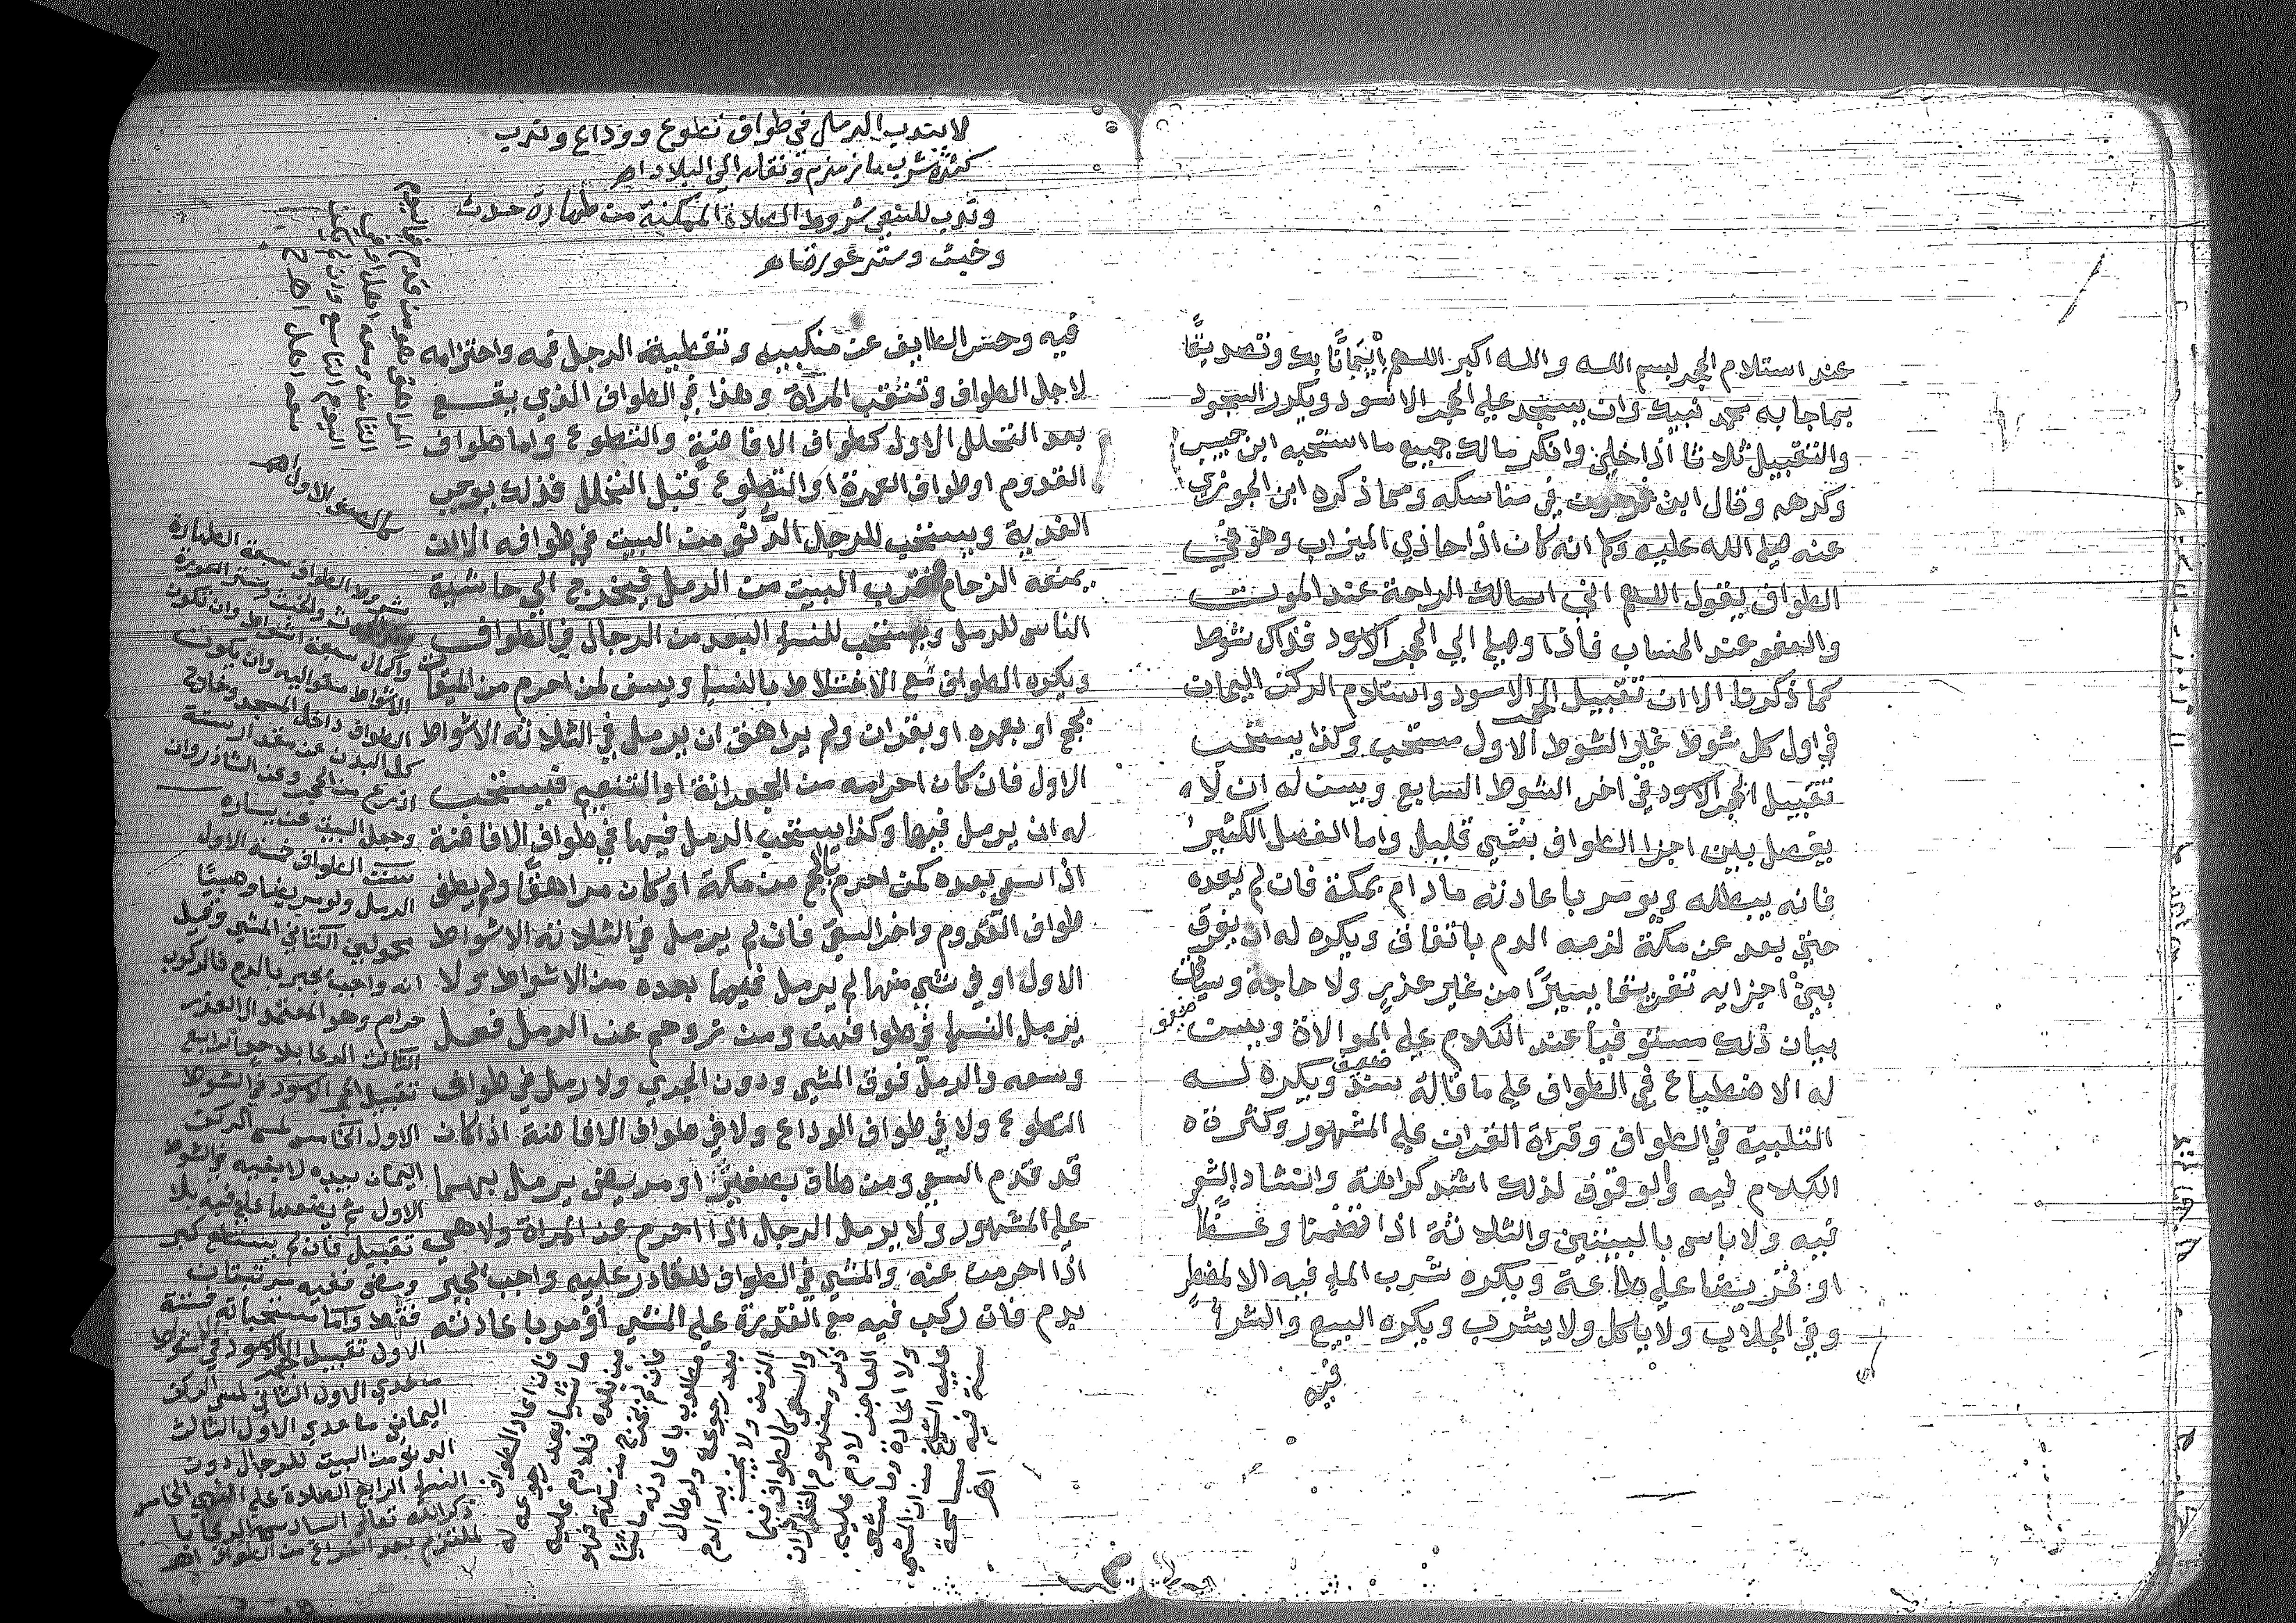 عند استلام الحجر لبسم الله والله اكبر اللهم إيمانًا بك وتصديقًا
بما جا به محمد نبيك وان يسجد علي الحجر الاسود ويكرر السجود
والتقبيل ثلاثا اذا خلي وانكر مالك جميع ما استحبه ابن حبيب
وكرهه وقال ابن فرحون في مناسكه ومما ذكره ابن الجوزي
عنه صلي الله عليه وكما انه كان اذا حاذي الميزاب وهو في
الطواف يقول اللهم اني اسالك الراحة عند الموت
والعفو عند الحساب فاذا وصل الي الحجر الاسود فذلك شوط
كما ذكرنا الا ان تقبيل الحجر الاسود واستلام الركن اليمان
في اول كل شوط غير الشوط الاول مستحب وكذا يستحب
تقبيل الحجر الاسود في اخر الشوط السابع ويسن له ان لا
يفصل بين اجزا الطواف بشي قليل واما الفصل الكثير
فانه يبطله ويومر باعادته ما دام بمكة فان لم يعده
حتي بعد عن مكة لزمه الدم باتفاق ويكره له ان يفرق
بين اجزايه تفريقا يسيرًا من غير عذر ولا حاجة وسياتي
بيان ذلك مستوفيا عند الكلام علي الموالاة ويسن
له الاضطباع في الطواف علي ما قاله سند ويكره له
ضعيف
ضعيف
التلبية في الطواف وقراة القران علي المشهور وكثرة
الكلام فيه والوقوف لذلك اشد كراهة وانشاد الشعر
فيه ولا باس بالبيتين والثلاثة اذا تضمنا وعظا
او تحريضا علي طاعة ويكره شرب الماء فيه الا لمضطر
وفي الجلاب ولا ياكل ولا يشرب ويكره البيع والشرا
فيه
لا يندب الرمل في طواف تطوع ووداع وندب
كثرة شرب ماء زمزم ونقله الي البلاد اهـ
وندب للسعي شروط الصلاة الممكنة من طهارة حدث
وخبث وستر عورة اهـ
فيه وحسر الطايف عن منكبيه وتغطية الرجل فمه واحتزامه
لاجل الطواف وتنتقب المراة وهذا في الطواف الذي يقع
بعد التحلل الاول كطواف الافاضة والتطوع واما طواف
القدوم او طواف العمرة او التطوع قبل التحلل فذلك يوجب
الفدية ويستحب للرجل الدنو من البيت في طوافه الا ان
يمنعه الزحام بقرب البيت من الرمل فيخرج الي حاشية
الناس للرمل ويستحب للنساء البعد من الرجال في الطواف
ويكره الطواف مع الاختلاط بالنساء ويسن لمن احرم من الميقات
بحج او بعمره او بقران ولم يراهق ان يرمل في الثلاثة الاشواط
الاول فان كان احرامه من الجعرانة او التنعيم فيستحب
له ان يرمل فيها وكذا يستحب الرمل فيها في طواف الافاضة
اذا سعي بعده كمن احرم بالحج من مكة او كان مراهقا ولم يطف
طواف القدوم واخر السعي فان لم يرمل في الثلاثة الاشواط
الاول او في شي منها لم يرمل فيما بعده من الاشواط ولا
يرمل النساء في طوافهن ومن زوحم عن الرمل فعل
وسعه والرمل فوق المشي ودون الجري ولا رمل في طواف
التطوع ولا في طواف الوداع ولا في طواف الافاضة اذا كان
قد قدم السعي ومن طاف بصغير او مريض يرمل بهما
علي المشهور ولا يرمل الرجل اذا احرم عن المراة ولا هي
اذا احرمت عنه والمشي في الطواف للقادر عليه واجب يجبر
بدم فان ركب فيه مع القدرة علي المشي أومر باعادته
شروط الطواف سبعة الطهارة
من الحدث والخبث وستر العورة
واكمال سبعة اشواط وان تكون
الاشواط متواليه وان يكون
الطواف داخل المسجد وخارج
كل البدن عن مقدار ستة
اذرع من الحجر وعن الشاذروان
وجعل البيت عن يساره
سنن الطواف خمسة الاول
الرمل ولو مريضا وصبيًا
محمولين الثاني المشي وقيل
انه واجب يجبر بالدم فالركوب
حرام وهو المعتمد الا لعذر
الثالث الدعا بلا حد الرابع
تقبيل الحجر الاسود في الشوط
الاول الخامس لمس الركن
اليمان بيده لا بفيه في الشوط
الاول ثم يضعها علي فيه بلا
تقبيل فان لم يستطع كبر
ومضي ففيه مرتبتان
فقط واما مستحباته فستة
الاول تقبيل الحجر الاسود في الاشواط
ما عدي الاول الثاني لمس الركن
اليماني ما عدي الاول الثالث
الدنو من البيت للرجال دون
النساء الرابع الصلاة علي النبي الخامس
ذكر الله تعالى السادس الدعا با
لملتزم بعد الفراغ من الطواف اهـ
فان اعاد الطواف
ماشيا بعد رجوعه له
من بلده فلا دم عليه
فان لم يخرج من مكة فهو
مطلوب باعادته ماشيًا
بعد رجوعه ولو طال
الزمن ولا يجبر بالدم
والسعي كالطواف فيما
ذكر ومفهوم القادر ان
العاجز لا دم عليه
ولا اعادة وما مشي
عليه الشارح من ان المشي
سنة فيه مسامحة
اهـ